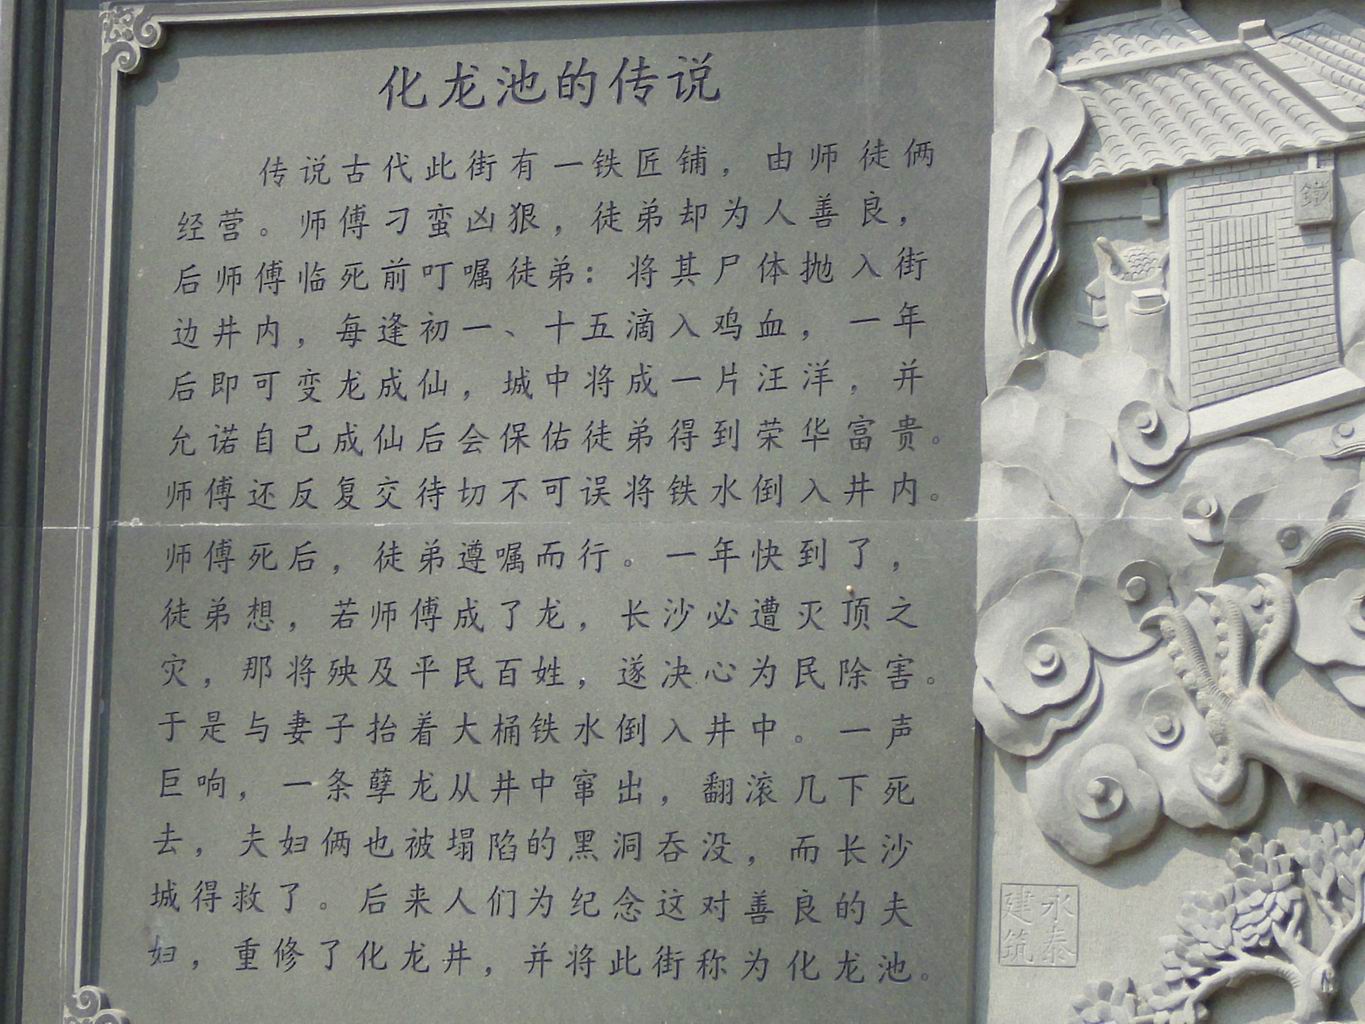 化龙池的传说
传说古代此街有一铁匠铺，由师徒俩
经营。师傅刁蛮凶狠，徒弟却为人善良，
后师傅临死前叮嘱徒弟：将其尸体抛入街
边井内，每逢初一、十五滴入鸡血，一年
后即可变龙成仙，城中将成一片汪洋，并
允诺自己成仙后会保佑徒弟得到荣华富贵。
师傅还反复交待切不可误将铁水倒入井内。
师傅死后，徒弟遵嘱而行。一年快到了，
徒弟想，若师傅成了龙，长沙必遭灭顶之
灾，那将殃及平民百姓，遂决心为民除害。
于是与妻子抬着大桶铁水倒入井中。一声
巨响，一条孽龙从井中窜出，翻滚几下死
去，夫妇俩也被塌陷的黑洞吞没，而长沙
城得救了。后来人们为纪念这对善良的夫
妇，重修了化龙井，并将此街称为化龙池。
鐵
永泰
建筑